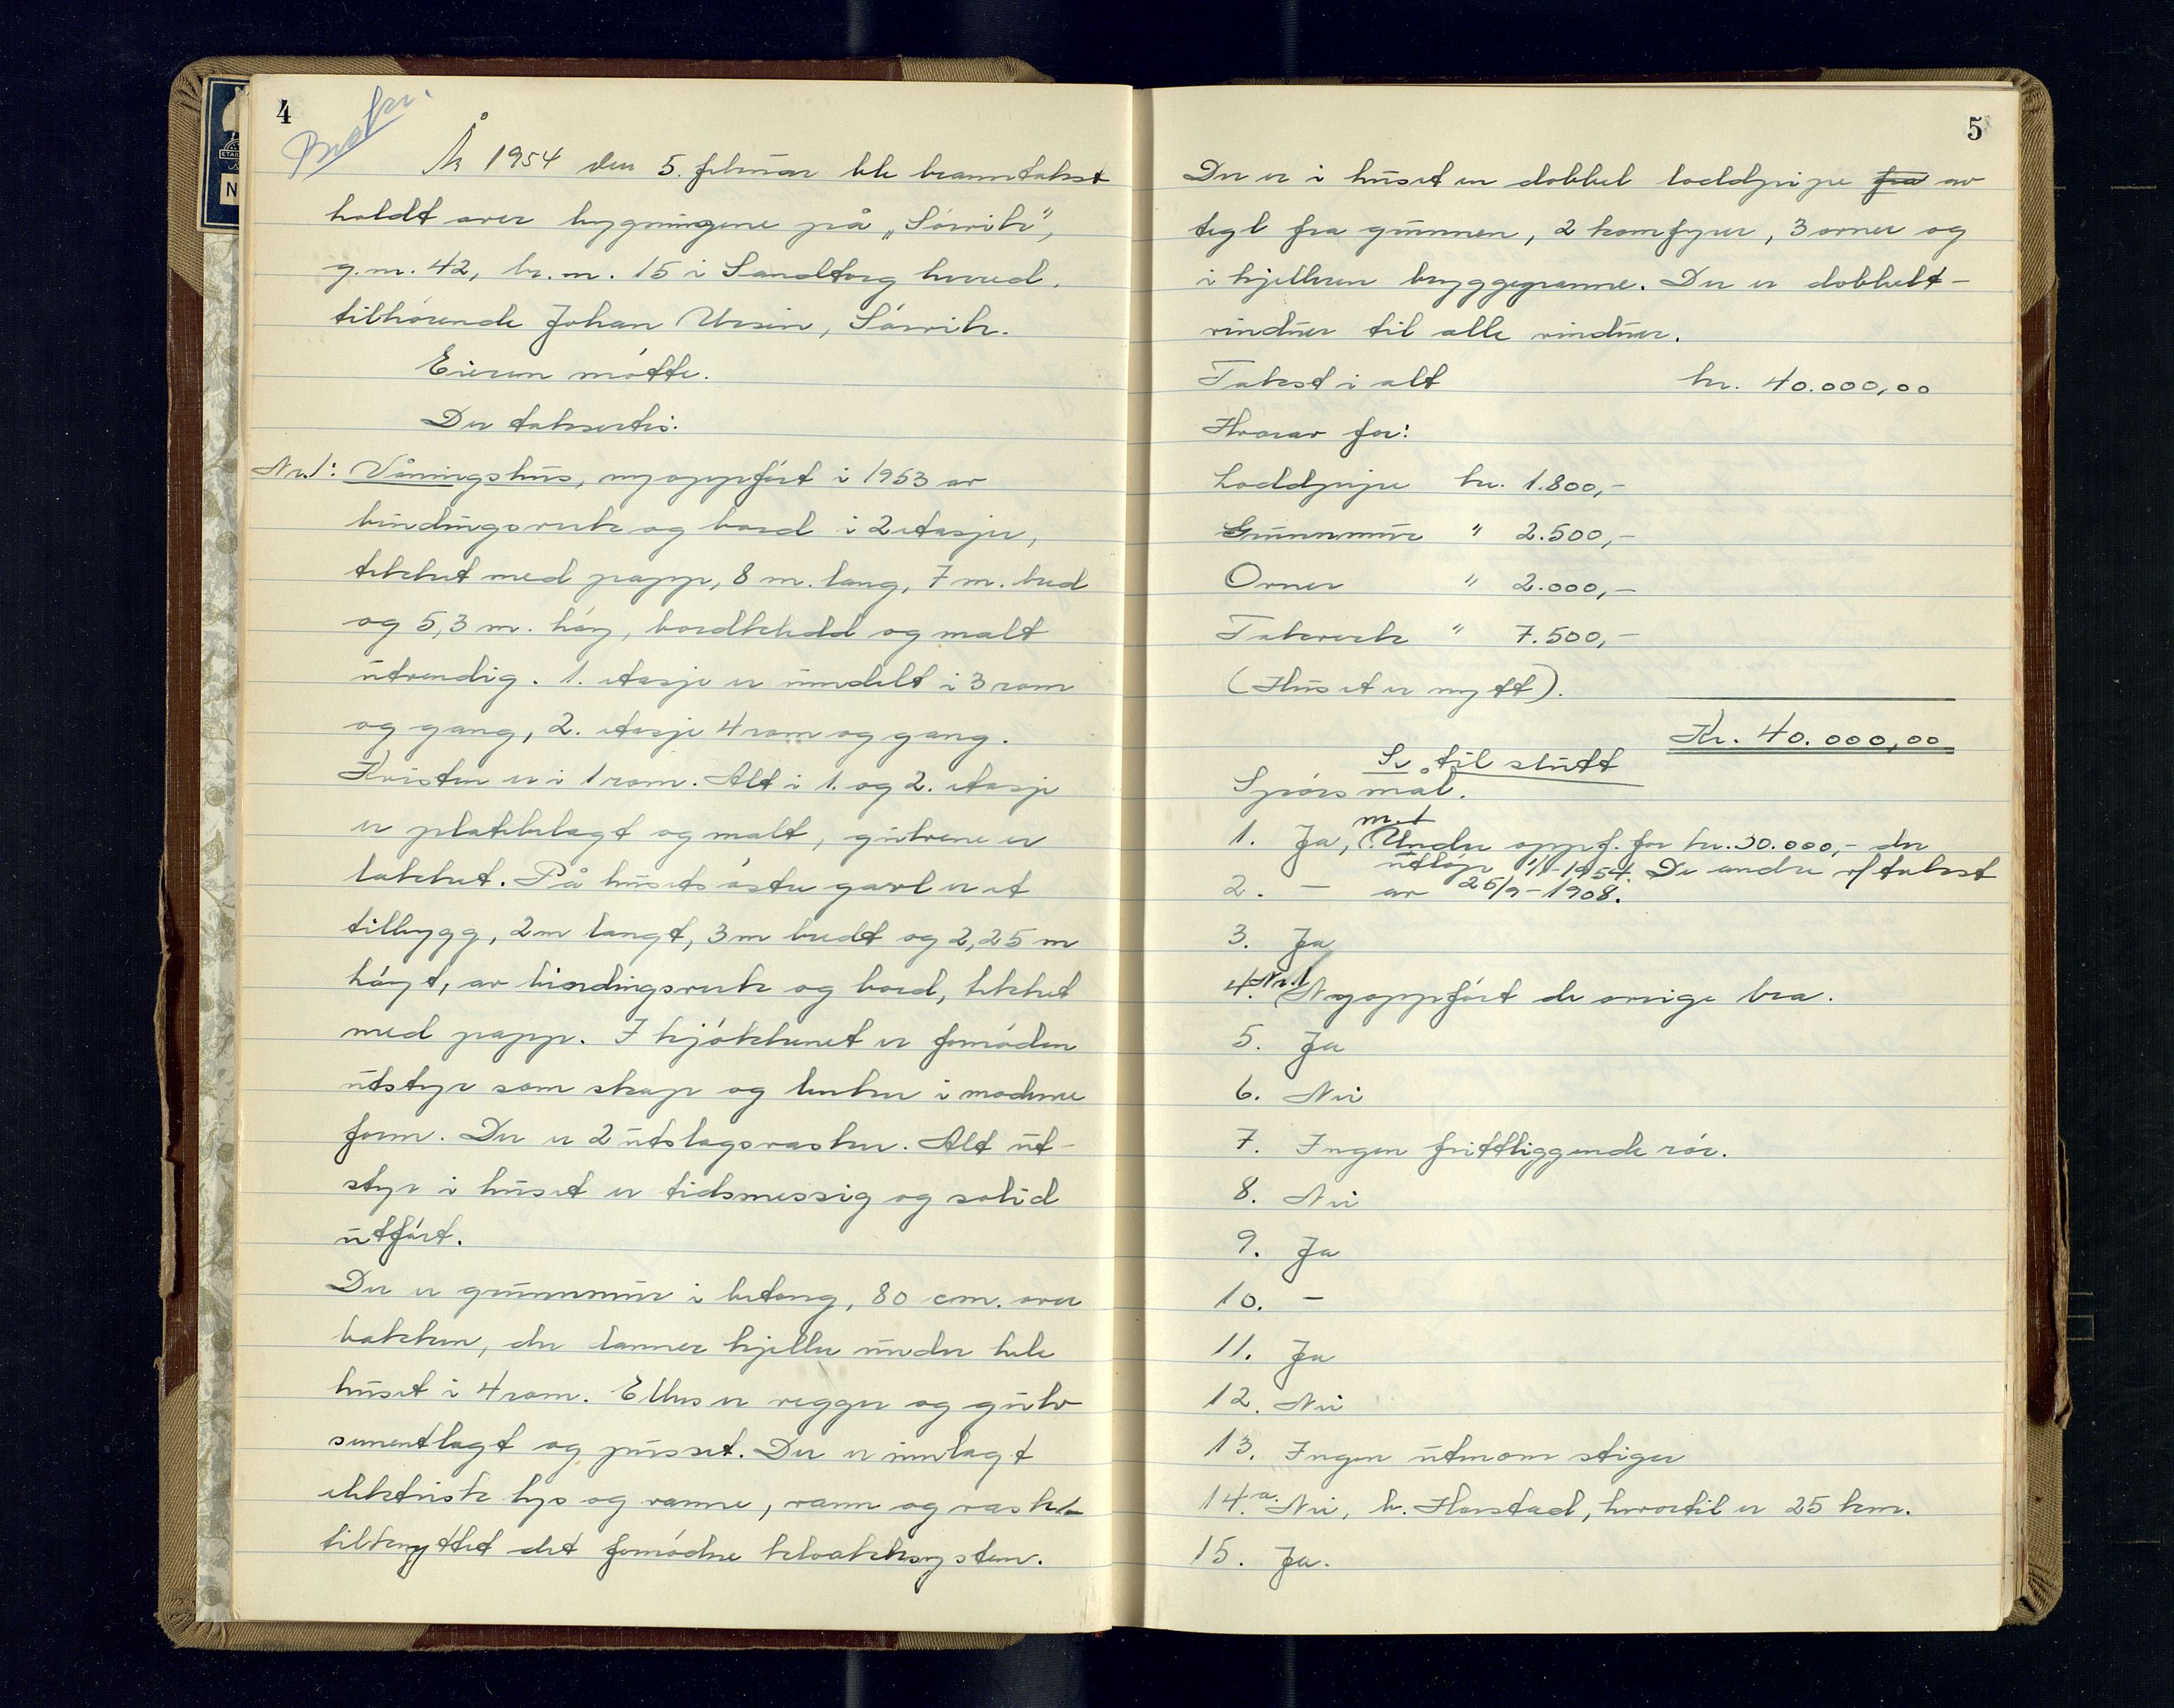 4
År 1954 den 5. februar ble branntakst
holdt over bygningene på „Sørvik",
g.nr. 42, br.nr. 15 i Sandtorg herred,
tilhørende Johan Ursin, Sørvik.
Eieren møtte.
Der taksertes:
Nr. 1: Våningshus, nyoppført i 1953 av
bindingsverk og bord i 2 etasjer,
tekket med papp, 8 m. lang, 7 m. bred
og 5,3 m. høy, bordkledd og malt
utvendig. 1. etasje er inndelt i 3 rom
og gang, 2. etasje 4 rom og gang.
Kvisten er i 1 rom. Alt i 1. og 2. etasje
er platebelagt og malt, gulvene er
lakket. På husets østre gavl er et
tilbygg, 2 m langt, 3 m bredt og 2,25 m
høyt, av bindingsverk og bord, tekket
med papp. I kjøkkenet er fornøden
utstyr som skap og benker i moderne
form. Der er 2 utslagsvasker. Alt ut-
styr i huset er tidsmessig og solid
utført.
Der er grunnmur i betong, 80 cm. over
bakken, der danner kjeller under hele
huset i 4 rom. Ellers er vegger og gulv
sementlagt og pusset. Der er innlagt
elektrisk lys og varme, vann og vask
tilknyttet det fornødne kloakksystem.
5
Der er i huset en dobbel loddpipe fra av
tegl fra grunnen, 2 komfyrer, 3 ovner og
i kjelleren bryggepanne. Der er dobbelt-
vinduer til alle vinduer.
Takst i alt kr. 40.000,00
Hvorav for:
Loddpipe kr. 1.800,-
Grunnmur " 2.500,-
Ovner " 2.000,-
Takverk " 7.500,-
(Huset er nytt).
Kr. 40.000,00
Se til slutt
Spørsmål.
nr. 1
1. Ja, Under oppf. for kr. 30.000,- der
utløp 1/1-1954. De andre v/takst
2. - av 25/9-1908.
3. Ja
4. Nr. 1 Nyoppført de øvrige bra.
5. Ja
6. Nei
7. Ingen frittliggende rør.
8. Nei
9. Ja
10. -
11. Ja
12. Nei
13. Ingen utenom stiger
14. a. Nei, b. Harstad, hvortil er 25 km.
15. Ja.